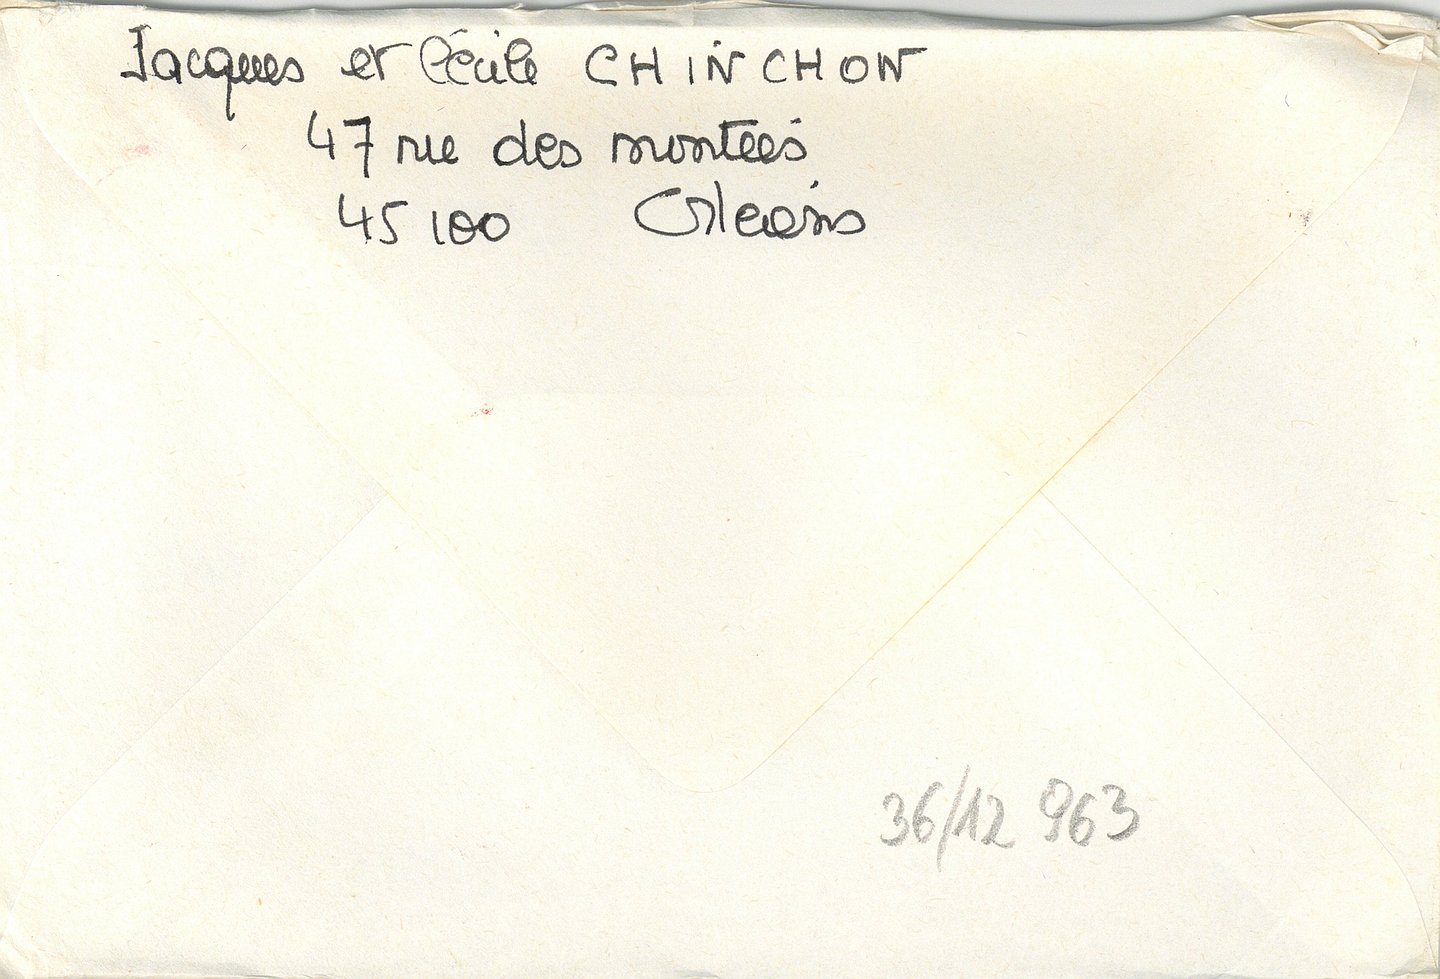 Jacques et Cécile CHINCHON
47 rue des montées
45100 Orléans
36/12 963